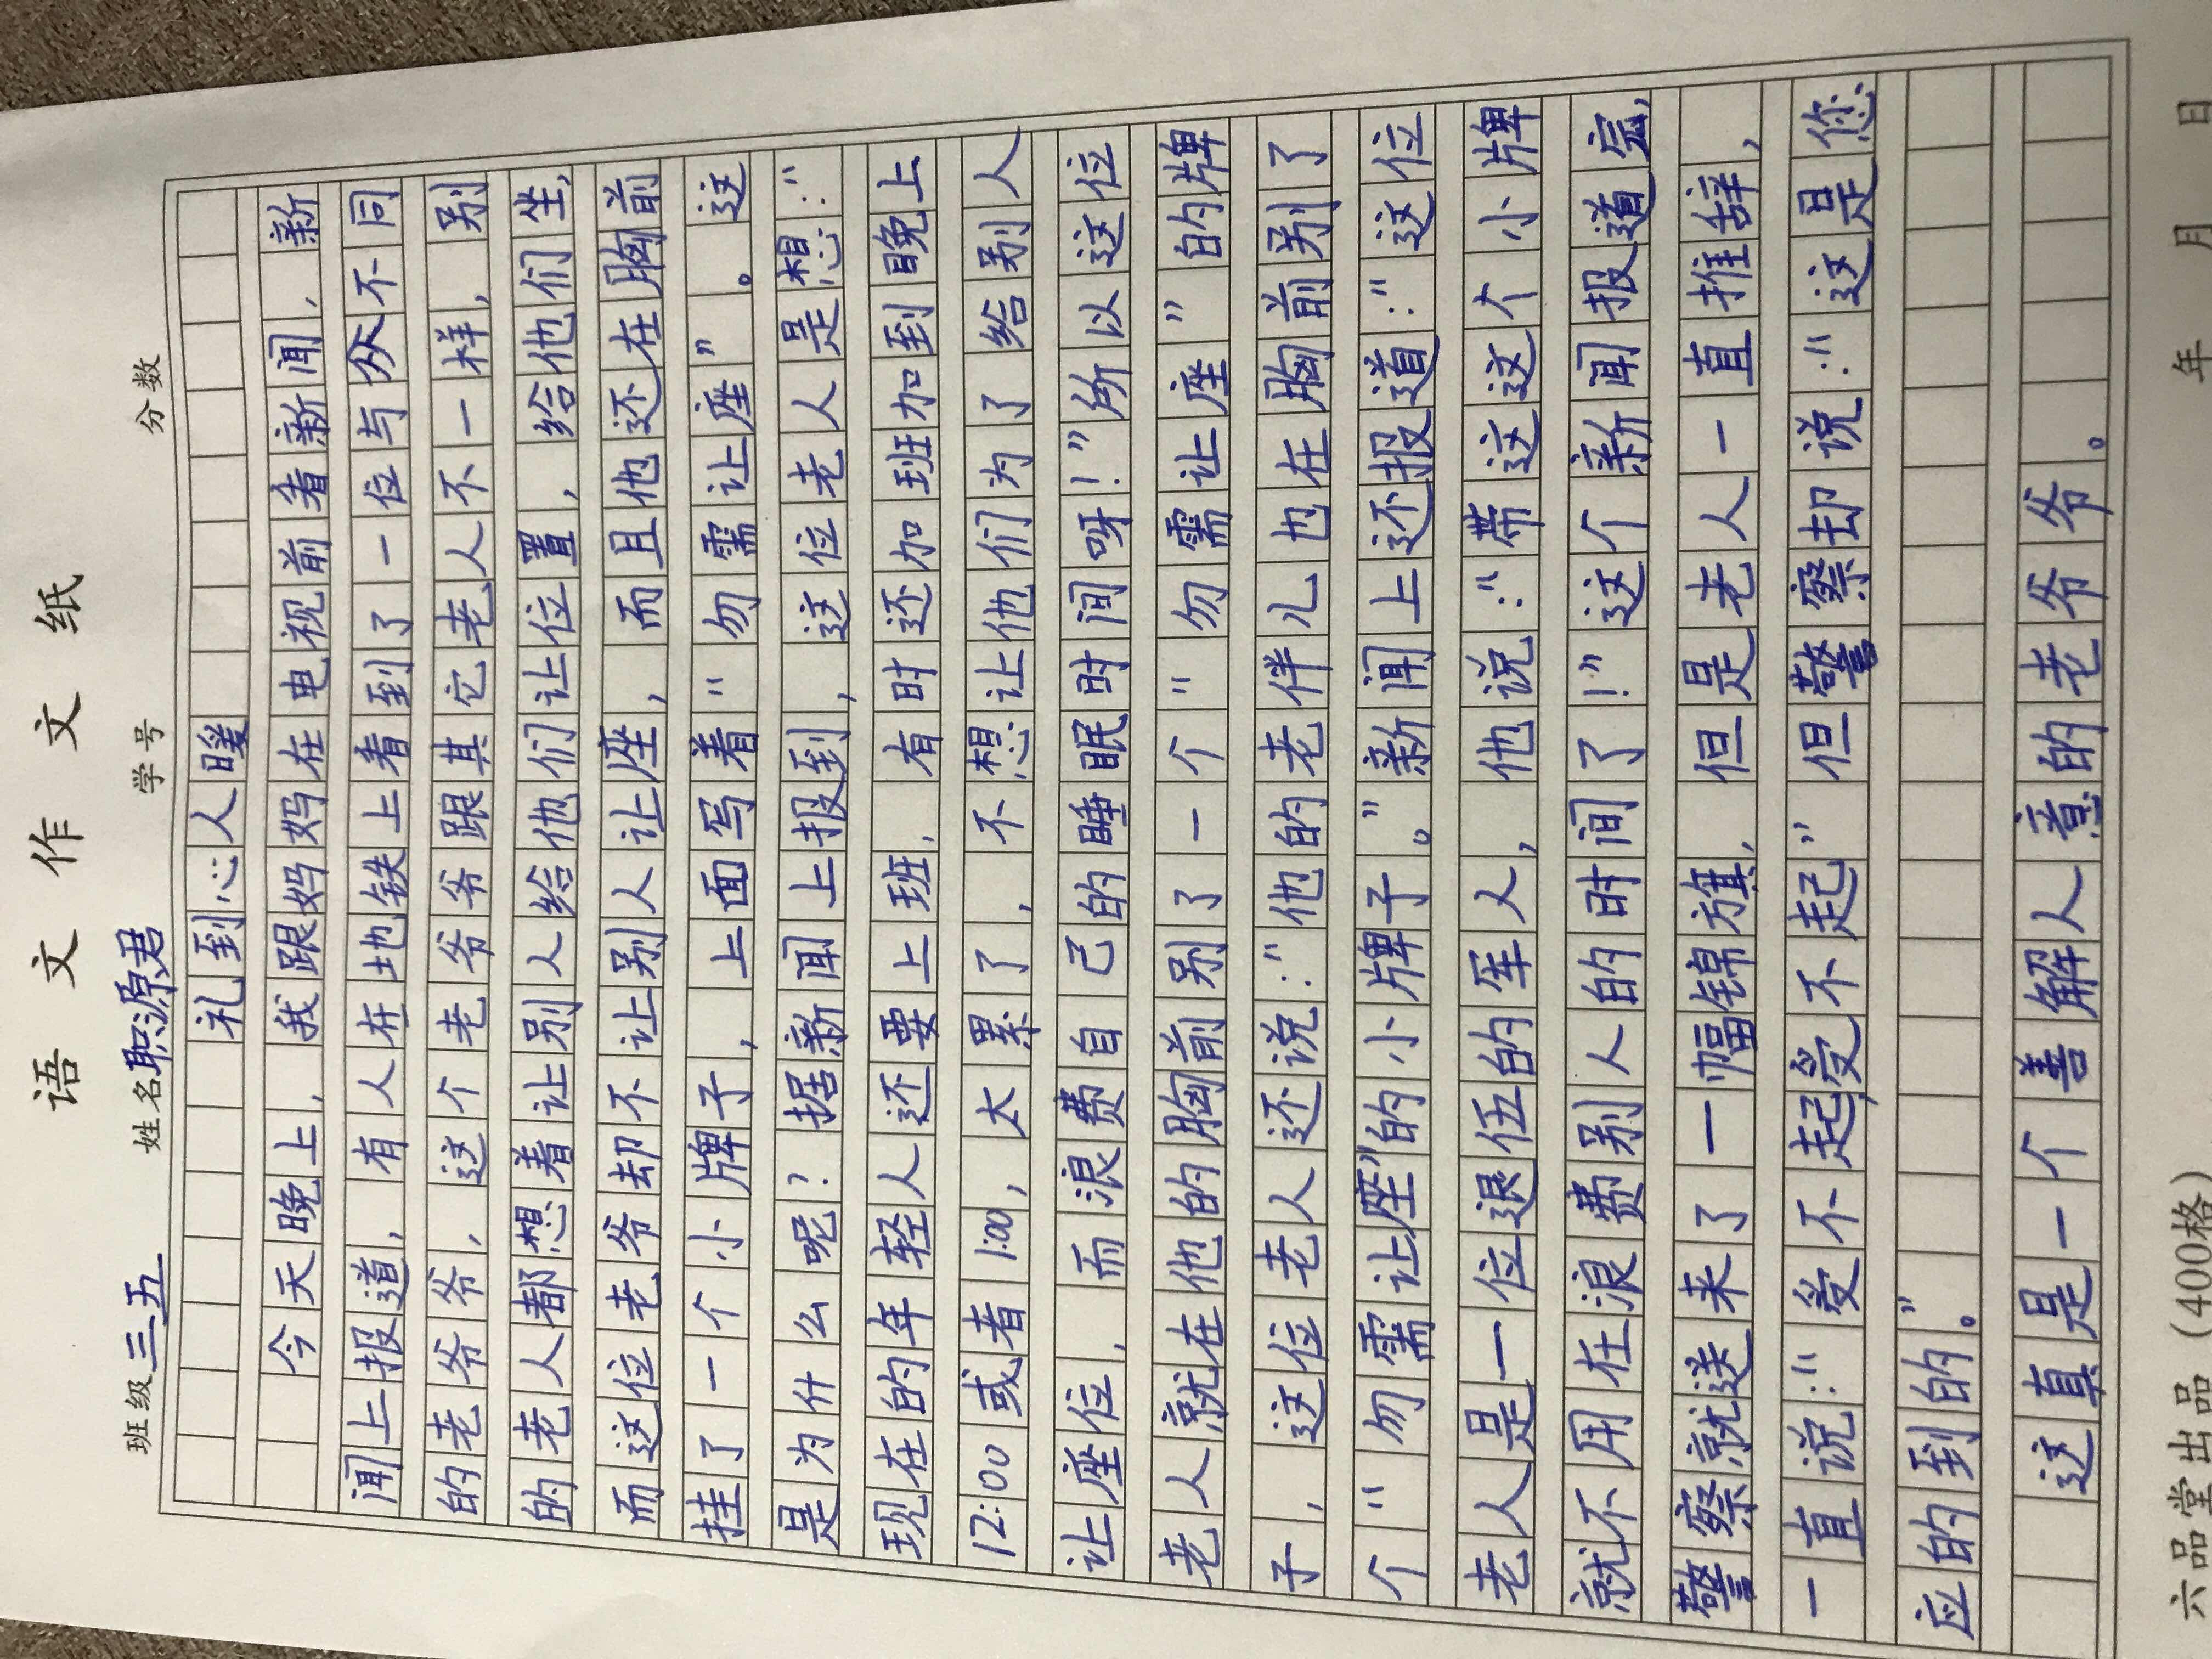 语文作文纸
班级三五 姓名职源君 学号 分数
礼到心人暖
今天晚上，我跟妈妈在电视前看新闻，新
闻上报道，有人在地铁上看到了一位与众不同
的老爷爷，这个老爷爷跟其它老人不一样，别
的老人都想着让别人给他们让位置，给他们坐，
而这位老爷却不让别人让座，而且他还在胸前
挂了一个小牌子，上面写着“勿需让座”。这
是为什么呢？据新闻上报到，这位老人是想：“
现在的年轻人还要上班，有时还加班加到晚上
12:00或者1:00，太累了，不想让他们为了给别人
让座位，而浪费自己的睡眠时间呀！”所以这位
老人就在他的胸前别了一个“勿需让座”的牌
子，这位老人还说：“他的老伴儿也在胸前别了
个“勿需让座”的小牌子。”新闻上还报道：“这位
老人是一位退伍的军人，他说：“带这这个小牌
就不用在浪费别人的时间了！”这个新闻报道完，
警察就送来了一幅锦旗，但是老人一直推辞，
一直说：“受不起受不起”但警察却说：“这是您
应的到的。”
这真是一个善解人意的老爷爷。
六品堂出品（400格） 年 月 日